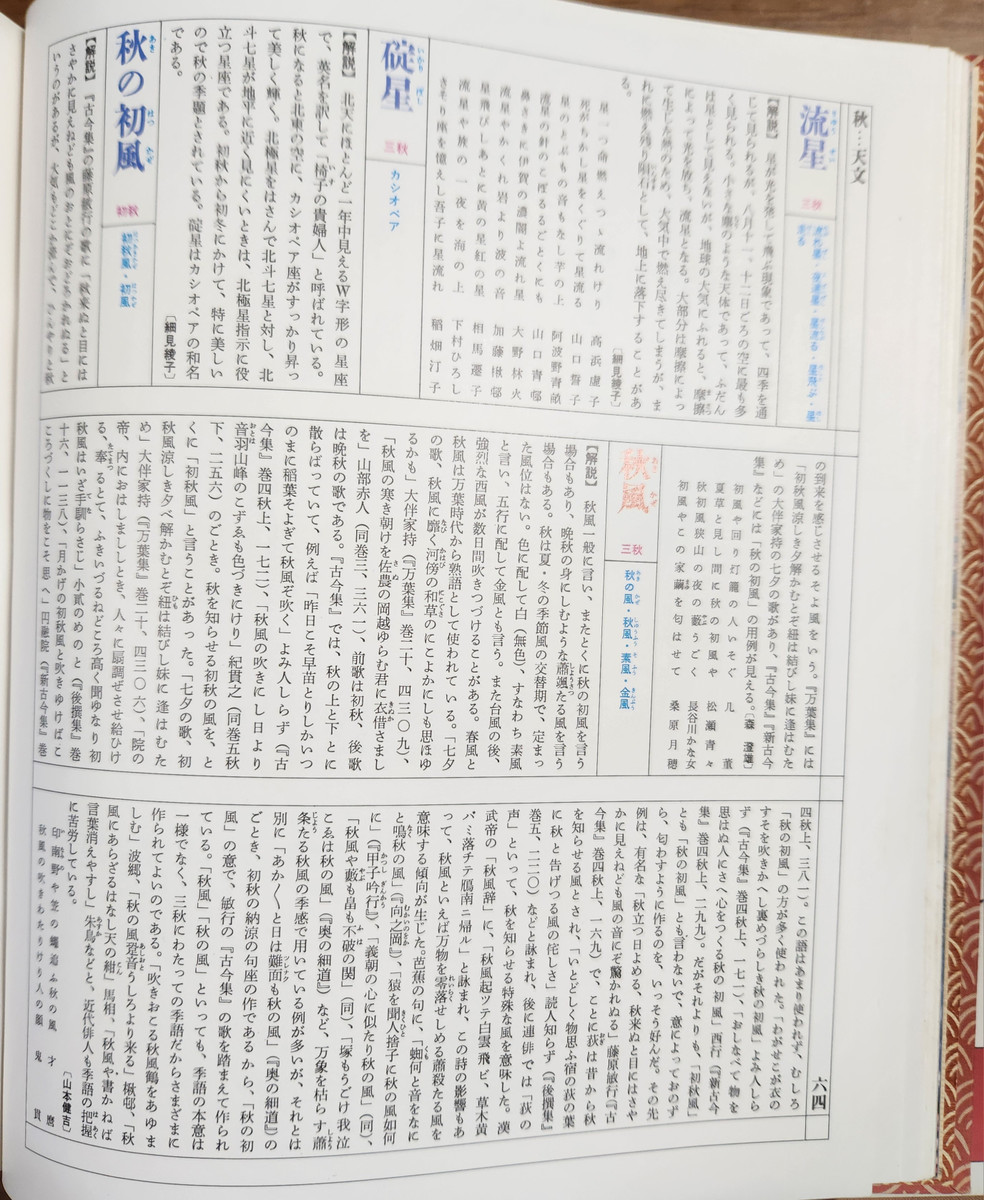 秋…天文
六四
流星
りゅうせい
三秋
流れ星・夜這星・星流る・星飛ぶ・星
走る
【解説】 星が光を発して飛ぶ現象であって、四季を通
じて見られるが、八月十一、十二日ごろの空に最も多
く見られる。小さな塵のような天体であって、ふだん
は星として見えないが、地球の大気にふれると、摩擦
によって光を放ち、流星となる。大部分は摩擦によっ
て生じた熱のため、大気中で燃え尽きてしまうが、ま
れに燃え残りが隕石として、地上に落下することがあ
る。
〔細見綾子〕
星一つ命燃えつゝ流れけり 高浜虚子
死がちかし星をくぐりて星流る 山口誓子
星のとぶもの音もなし芋の上 阿波野青畝
流星の針のこぼるるごとくにも 山口青邨
鼻さきに伊賀の濃闇よ流れ星 大野林火
流星やかくれ岩より波の音 加藤楸邨
星飛びしあとに黄の星紅の星 相馬遷子
流星や旅の一夜を海の上 下村ひろし
きそり座を憶えし吾子に星流れ 稲畑汀子
碇星
いかりぼし
三秋
カシオペア
【解説】 北天にほとんど一年中見えるW字形の星座
で、英名を訳して「椅子の貴婦人」と呼ばれている。
秋になると北東の空に、カシオペア座がすっかり昇っ
て美しく輝く。北極星をはさんで北斗七星と対し、北
斗七星が地平に近く見にくいときは、北極星指示に役
立つ星座である。初秋から初冬にかけて、特に美しい
ので秋の季題とされている。碇星はカシオペアの和名
である。
〔細見綾子〕
秋の初風
あきのはつかぜ
初秋
初秋風・初風
【解説】『古今集』の藤原敏行の歌に「秋来ぬと目には
さやかに見えねども風のおとにぞおどろかれぬる」と
いうのがあるが、
の到来を感じさせるそよ風をいう。『万葉集』には
「初秋風涼しき夕解かむとぞ紐は結びし妹に逢はむた
め」の大伴家持の七夕の歌があり、『古今集』『新古今
集』などには「秋の初風」の用例が見える。〔森 澄雄〕
初風や回り灯籠の人いそぐ 几董
夏草と見し間に秋の初風や 松瀬青々
秋初風狭山の夜の藪うごく 長谷川かな女
初風やこの家繭を匂はせて 桑原月穂
秋風
あきかぜ
三秋
秋の風・秋風・素風・金風
【解説】 秋風一般に言い、またとくに秋の初風を言う
場合もあり、晩秋の身にしむような蕭颯たる風を言う
場合もある。秋は夏・冬の季節風の交替期で、定まっ
た風位はない。色に配して白（無色）、すなわち素風
と言い、五行に配して金風とも言う。また台風の後、
強烈な西風が数日間吹きつづけることがある。春風と
秋風は万葉時代から熟語として使われている。「七夕
の歌、秋風に靡く河傍の和草のにこよかにしも思ほゆ
るかも」大伴家持（『万葉集』巻二十、四三〇九）、
「秋風の寒き朝けを佐農の岡越ゆらむ君に衣借さまし
を」山部赤人（同巻三、三六一）、前歌は初秋、後歌
は晩秋の歌である。『古今集』では、秋の上と下とに
散らばっていて、例えば「昨日こそ早苗とりしかいつ
のまに稲葉そよぎて秋風ぞ吹く」よみ人しらず（『古
今集』巻四秋上、一七二）、「秋風の吹きにし日より
音羽山峰のこずゑも色づきにけり」紀貫之（同巻五秋
下、二五六）のごとき。秋を知らせる初秋の風を、と
くに「初秋風」と言うことがあった。「七夕の歌、初
秋風涼しき夕べ解かむとぞ紐は結びし妹に逢はむた
め」大伴家持（『万葉集』巻二十、四三〇六）、「院の
帝、内におはしまししとき、人々に扇調ぜさせ給ひけ
る、奉るとて、ふきいづるねどころ高く聞ゆなり初
秋風はいざ手馴らさじ」小弐めのと（『後撰集』巻
十六、一一三八）、「月かげの初秋風と吹きゆけばこ
ころづくしに物をこそ思へ」円融院（『新古今集』巻
四秋上、三八一）。この語はあまり使われず、むしろ
「秋の初風」の方が多く使われた。「わがせこが衣の
すそを吹きかへし裏めづらしき秋の初風」よみ人しら
ず（『古今集』巻四秋上、一七一）、「おしなべて物を
思はぬ人にさへ心をつくる秋の初風」西行（『新古今
集』巻四秋上、二九九）。だがそれよりも、「初秋風」
とも「秋の初風」とも言わないで、意によっておのず
から、匂わすように作るのを、いっそう好んだ。その先
例は、有名な「秋立つ日よめる、秋来ぬと目にはさや
かに見えねども風の音にぞ驚かれぬる」藤原敏行（『古
今集』巻四秋上、一六九）で、ことに荻は昔から秋
を知らせる風とされ、「いとどしく物思ふ宿の荻の葉
に秋と告げつる風の侘しさ」読人知らず（『後撰集』
巻五、二二〇）などと詠まれ、後に連俳では「荻の
声」といって、秋を知らせる特殊な風を意味した。漢
武帝の「秋風辞」に、「秋風起ツテ白雲飛ビ、草木黄
バミ落チテ鴈南ニ帰ル」と詠まれ、この詩の影響もあ
って、秋風といえば万物を零落せしめる蕭殺たる風を
意味する傾向が生じた。芭蕉の句に、「蜘何と音をなに
と鳴秋の風」（『向之岡』）、「猿を聞人捨子に秋の風如何
に」（『甲子吟行』）、「義朝の心に似たり秋の風」（同）、
「秋風や藪も畠も不破の関」（同）、「塚もうごけ我泣
こゑは秋の風」（『奥の細道』）など、万象を枯らす蕭
条たる秋風の季感で用いている例が多いが、それとは
別に「あか〳〵と日は難面も秋の風」（『奥の細道』）の
ごとき、初秋の納涼の句座の作であるから、「秋の初
風」の意で、敏行の『古今集』の歌を踏まえて作られ
ている。「秋風」「秋の風」といっても、季語の本意は
一様でなく、三秋にわたっての季語だからさまざまに
作られてよいのである。「吹きおこる秋風鶴をあゆま
しむ」波郷、「秋の風跫音うしろより来る」楸邨、「秋
風にあらざるはなし天の紺」馬相、「秋風や書かねば
言葉消えやすし」朱鳥などと、近代俳人も季語の把握
に苦労している。
〔山本健吉〕
印南野や笠の蠅追ふ秋の風 才麿
秋風の吹きわたりけり人の顔 鬼貫